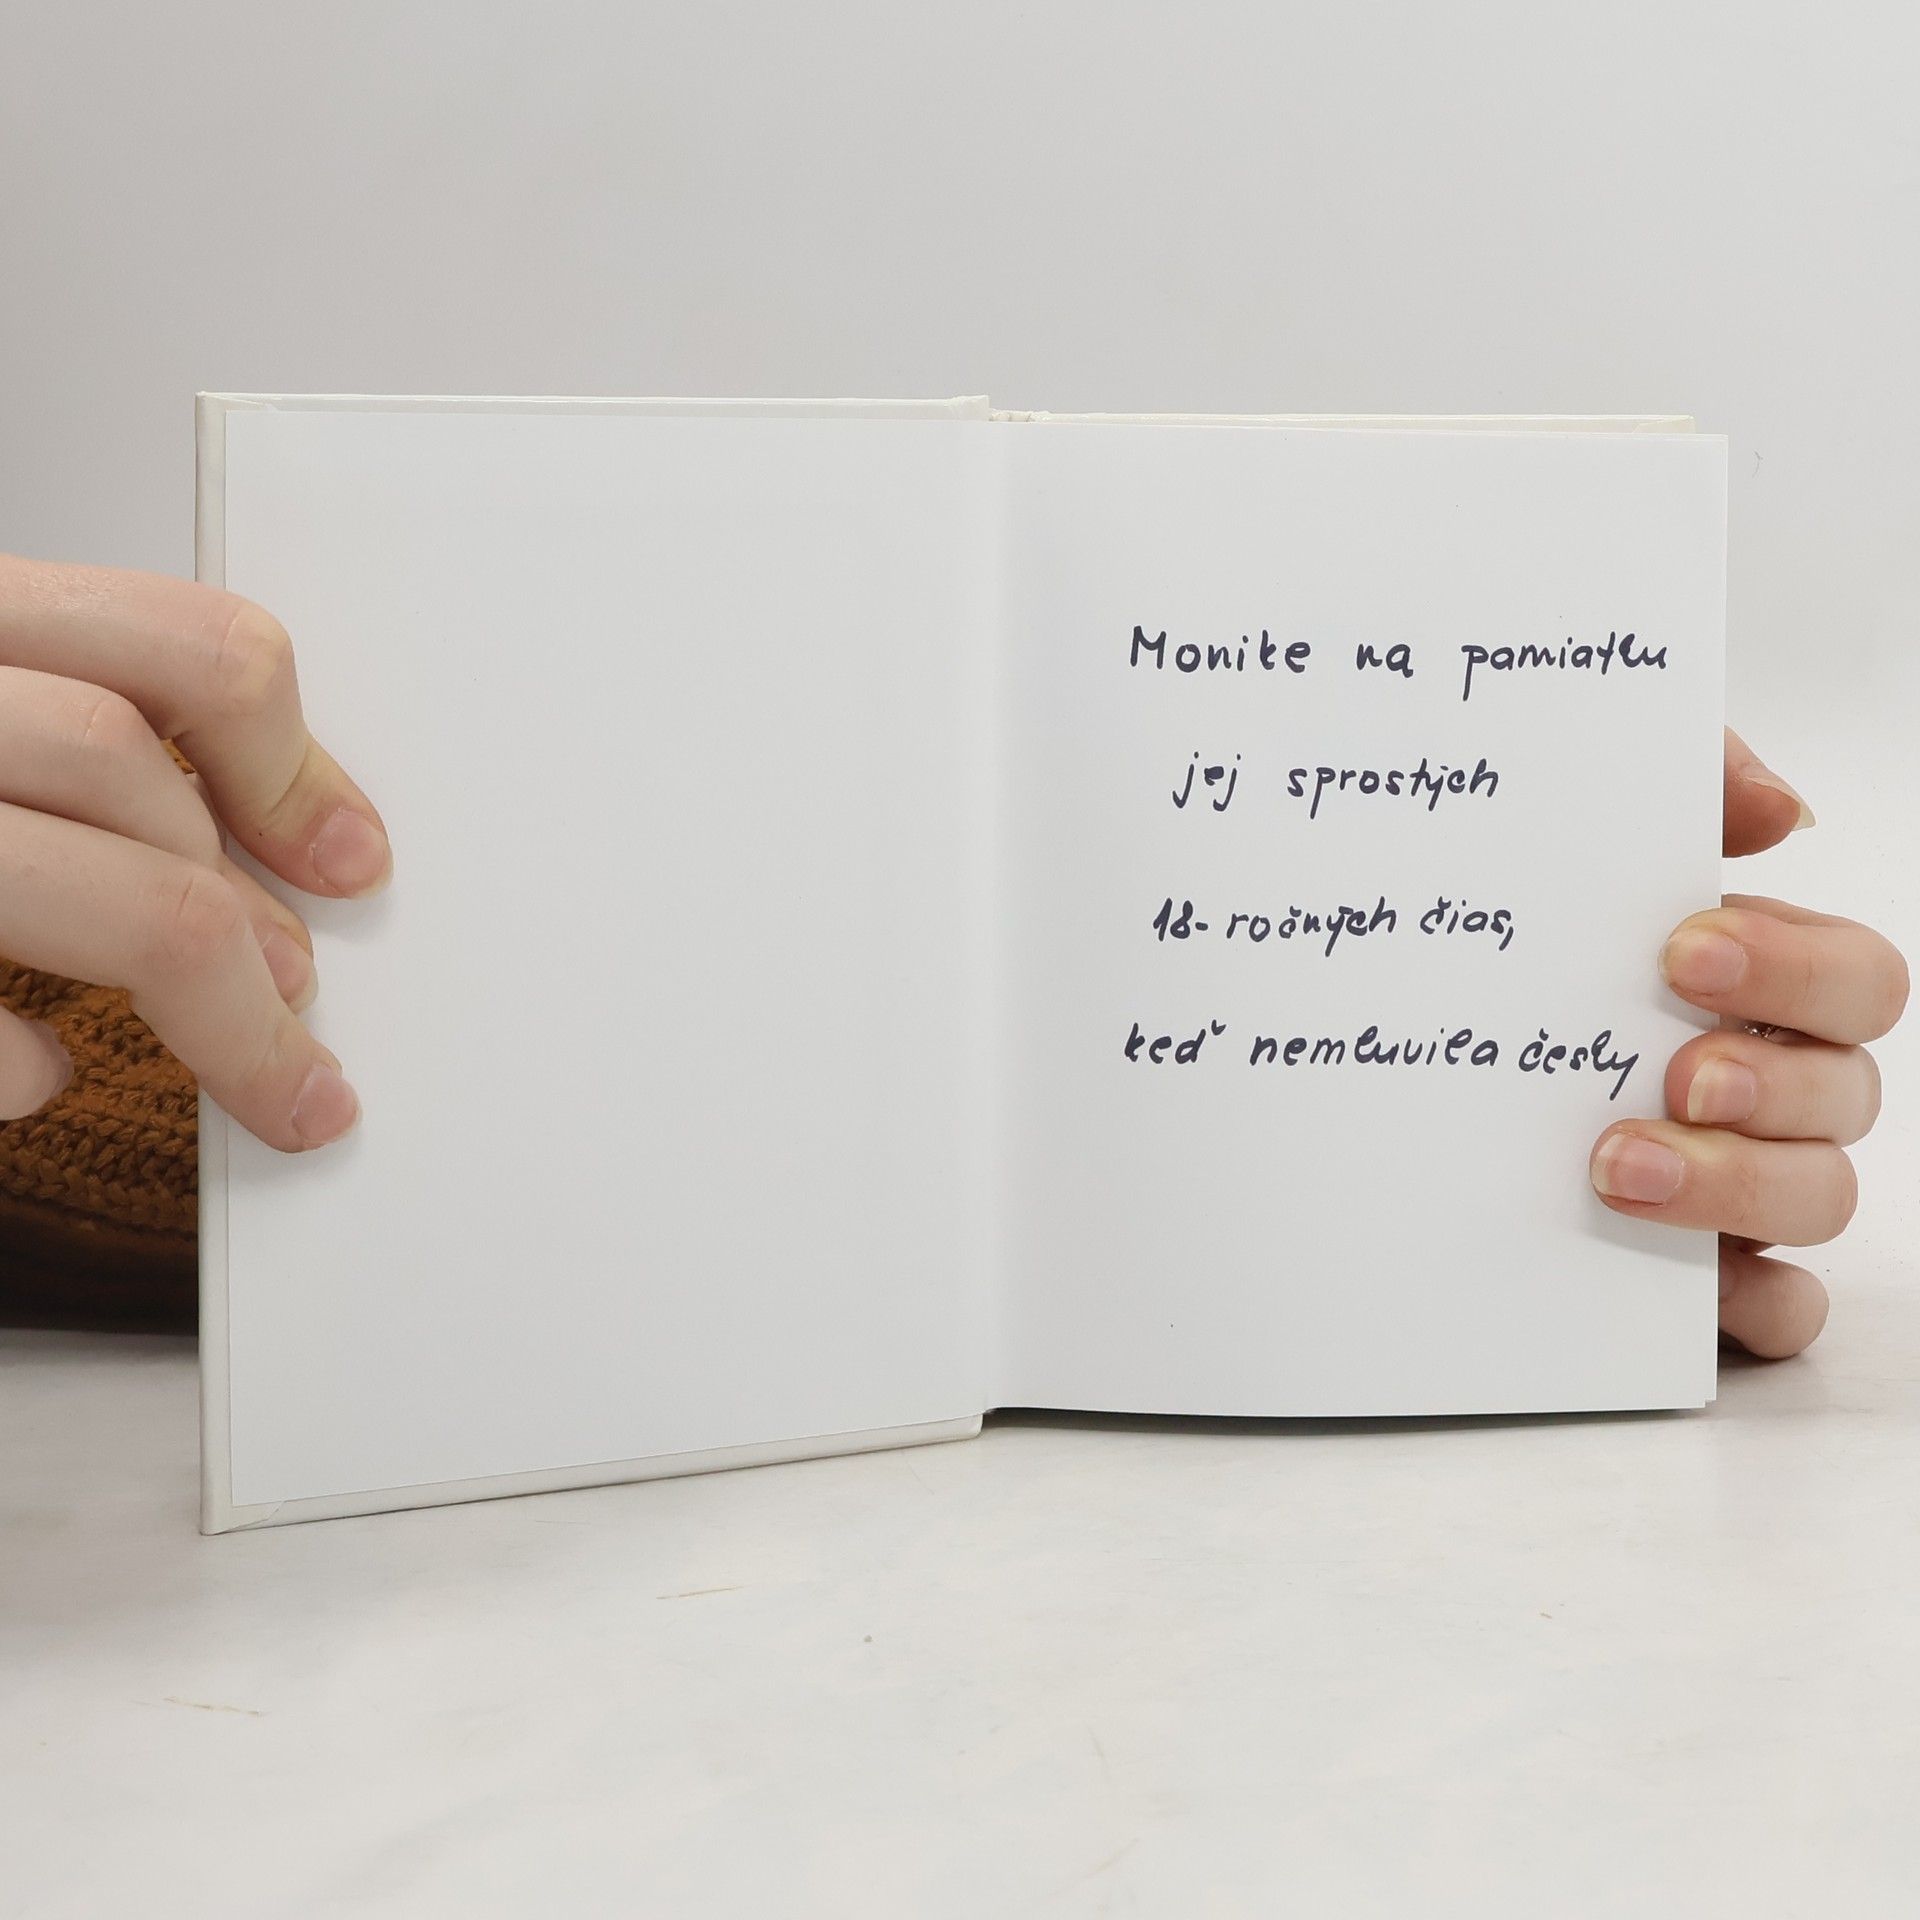 Monike na pamiatku
jej sprostých
18-ročných čias,
keď nemluvila česky